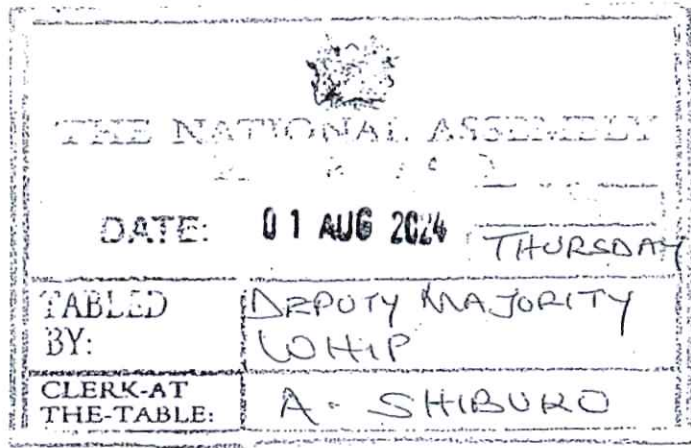 THE NATIONAL ASSEMBLY
DATE: 01 AUG 2024 THURSDAY
TABLED BY: DEPUTY MAJORITY WHIP
CLERK-AT THE-TABLE: A. SHIBUKO